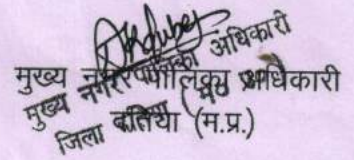 मुख्य नगरपालिका अधिकारी
मुख्य नगरपालिका अधिकारी
जिला दतिया (म.प्र.)